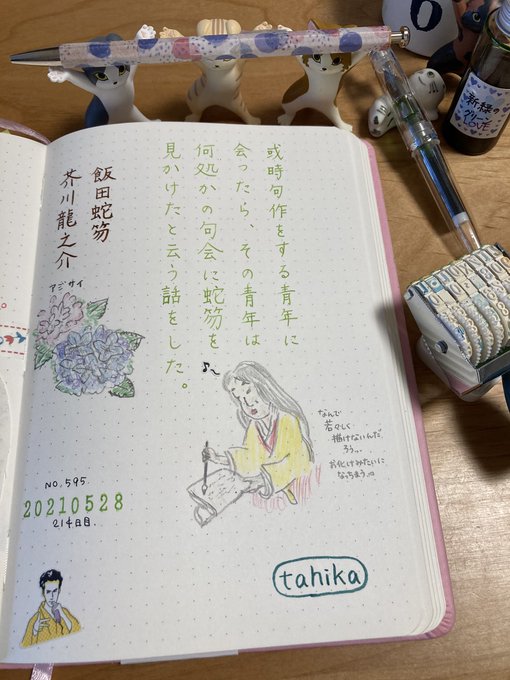 或時句作をする青年に
会ったら、その青年は
何処かの句会に蛇笏を
見かけたと云う話をした。
飯田蛇笏
芥川龍之介
アジサイ
なんで
若々しく
描けないんだ
ろう…
お化けみたいに
なっちまう
NO.595
20210528
214日目
tahika
新緑の
グリーン
LOVE